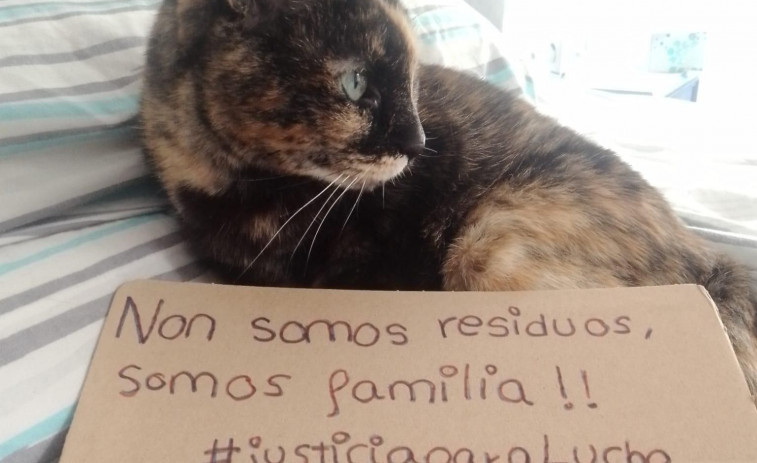 Non somos residuos,
somos familia!!
#justiciaparaLucho